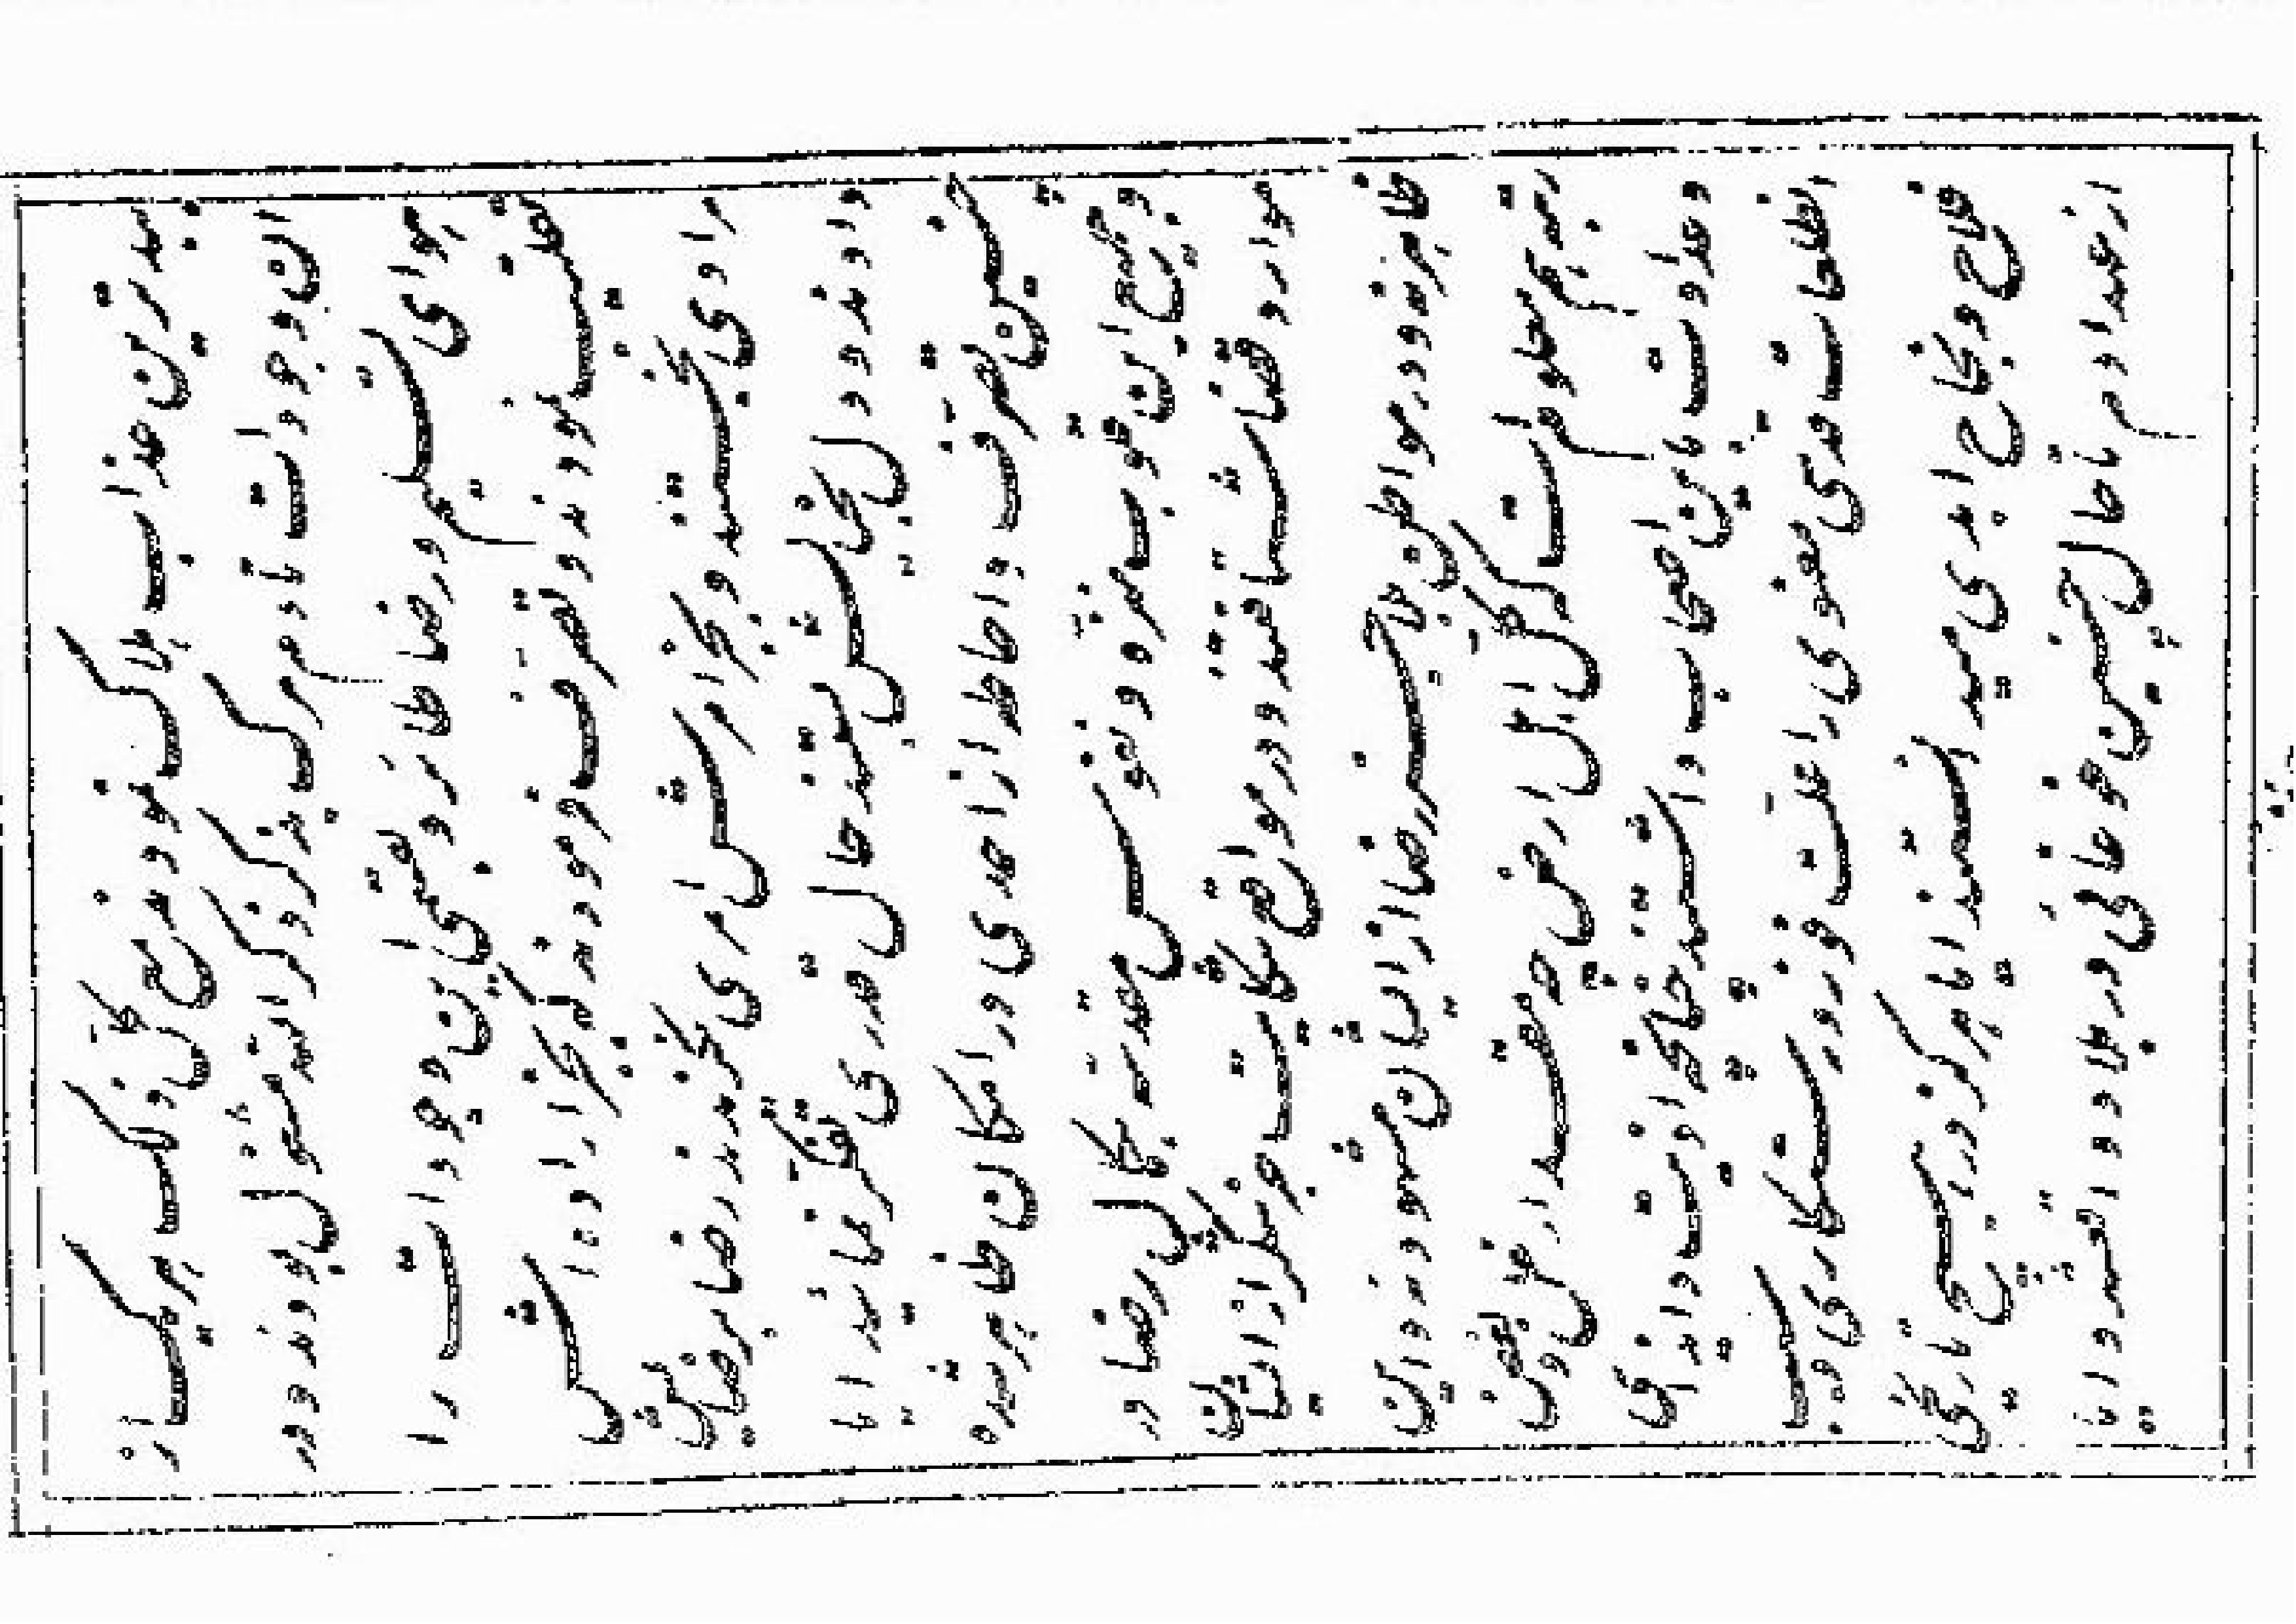 بدترین عذاب هلاک نمودند مع هرگز از
ان وجودات تا دم مرگ بذکر مشغول بودند و در
هوای تسلیم و رضا طائر و ان وجودات را
تقلیب نمودند و تصرف فرمودند که بجز اراده اش
مرادی نجستند و بجز امرش امری نگزیدند رضا برضایش
دادند و دل بخیالش بستند حال قدری تفکر نمائید ایا
چنین تصرف و احاطه از احدی در امکان ظاهر شده
و جمیع این قلوب منزه و نفوس مقدسه بکمال رضا در
موارد قضا شتافتند و در مواقع شکایت جز شکر از ایشان
ظاهر نه و در مواطن بلا جز رضا از ایشان مشهود نه و این
رتبه هم معلوم است که کل اهل ارض چه مقدار غل و بغض
و عداوت باین اصحاب داشتند چنانچه اذیت و ایذای
ان طلعات قدسی معنوی را علت فوز و رستگاری و سبب
فلاح و نجاح ابدی میدانستند ایا هرگز در هیچ تاریخی
از عهد ادم تا حال چنین غوغائی در بلاد واقع شد و ایا